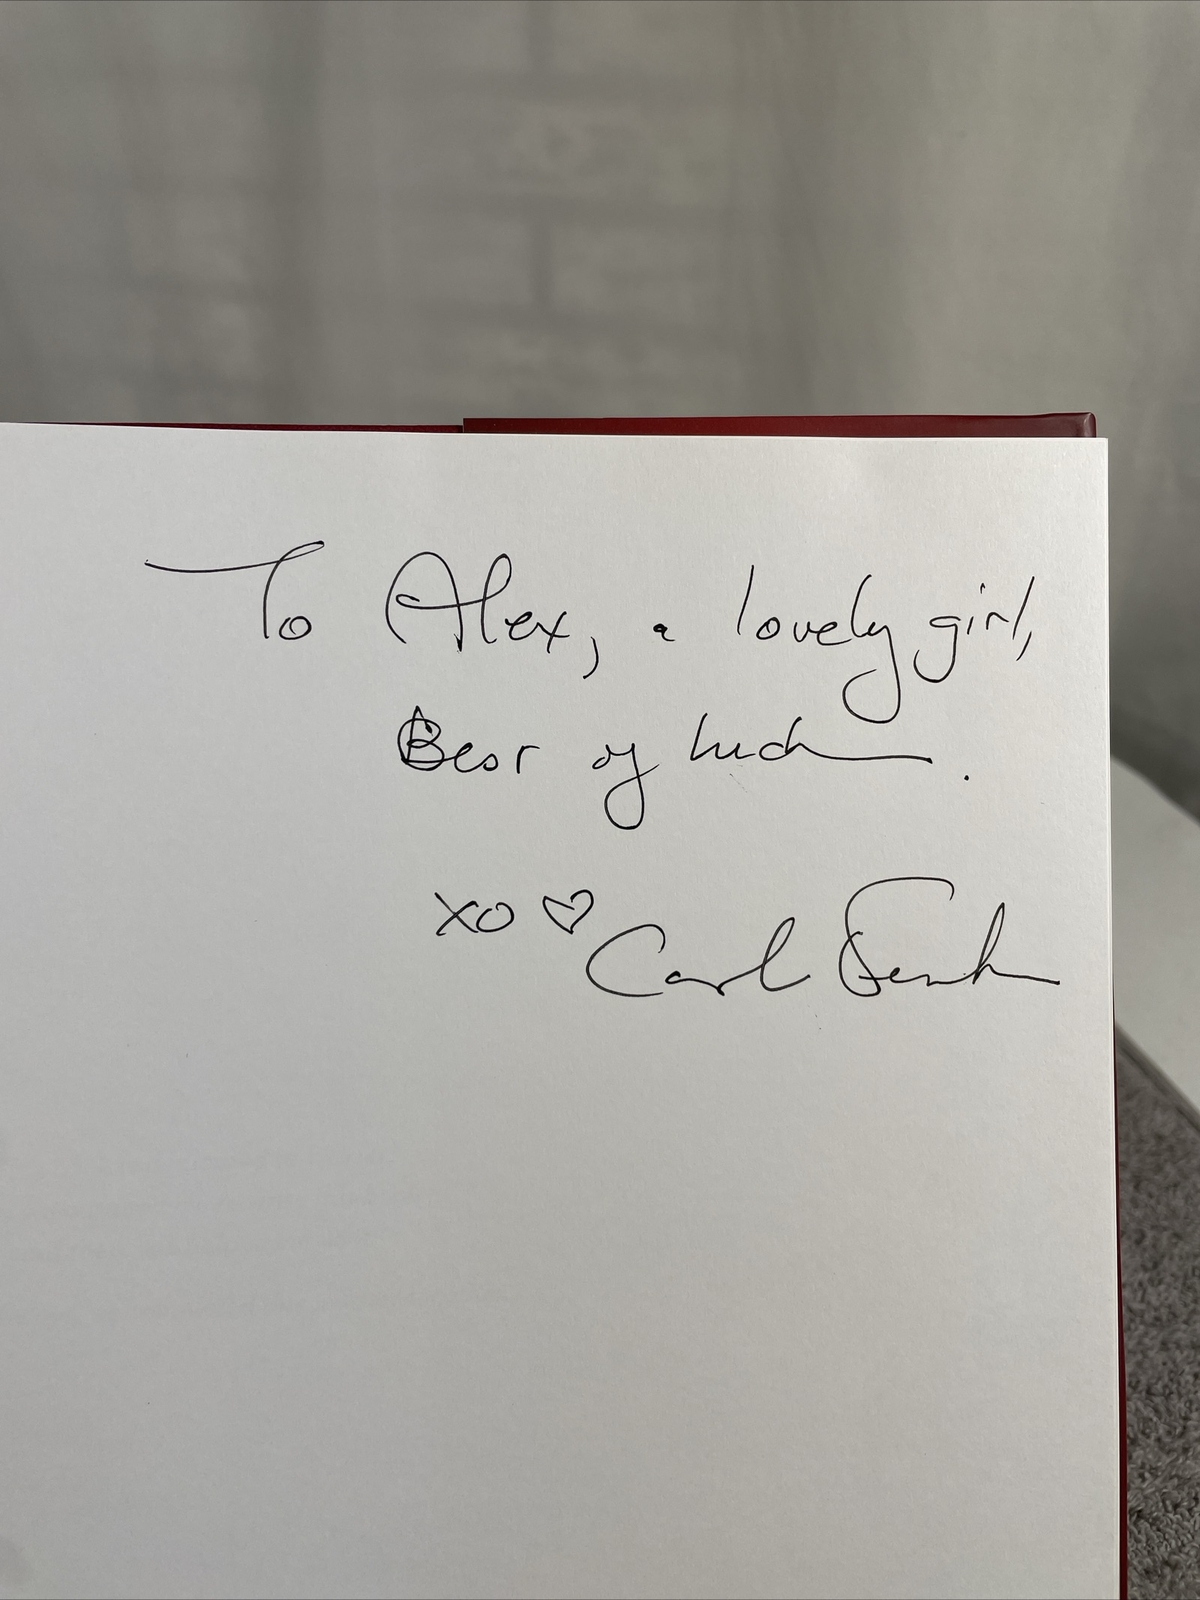 To Alex, a lovely girl,
Best of luck.
xo ♡
Carl